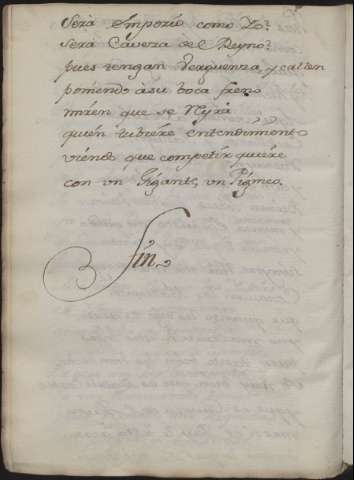 Será Emporio como Yo?
será Caveza de el Reyno?
pues tengan verguenza, y callen
poniendo à su boca freno
miren que se Riyrà
quien tubiere entendimiento
viendo que competir quiere
con un Gigante, un Pigmeo.
Fin.